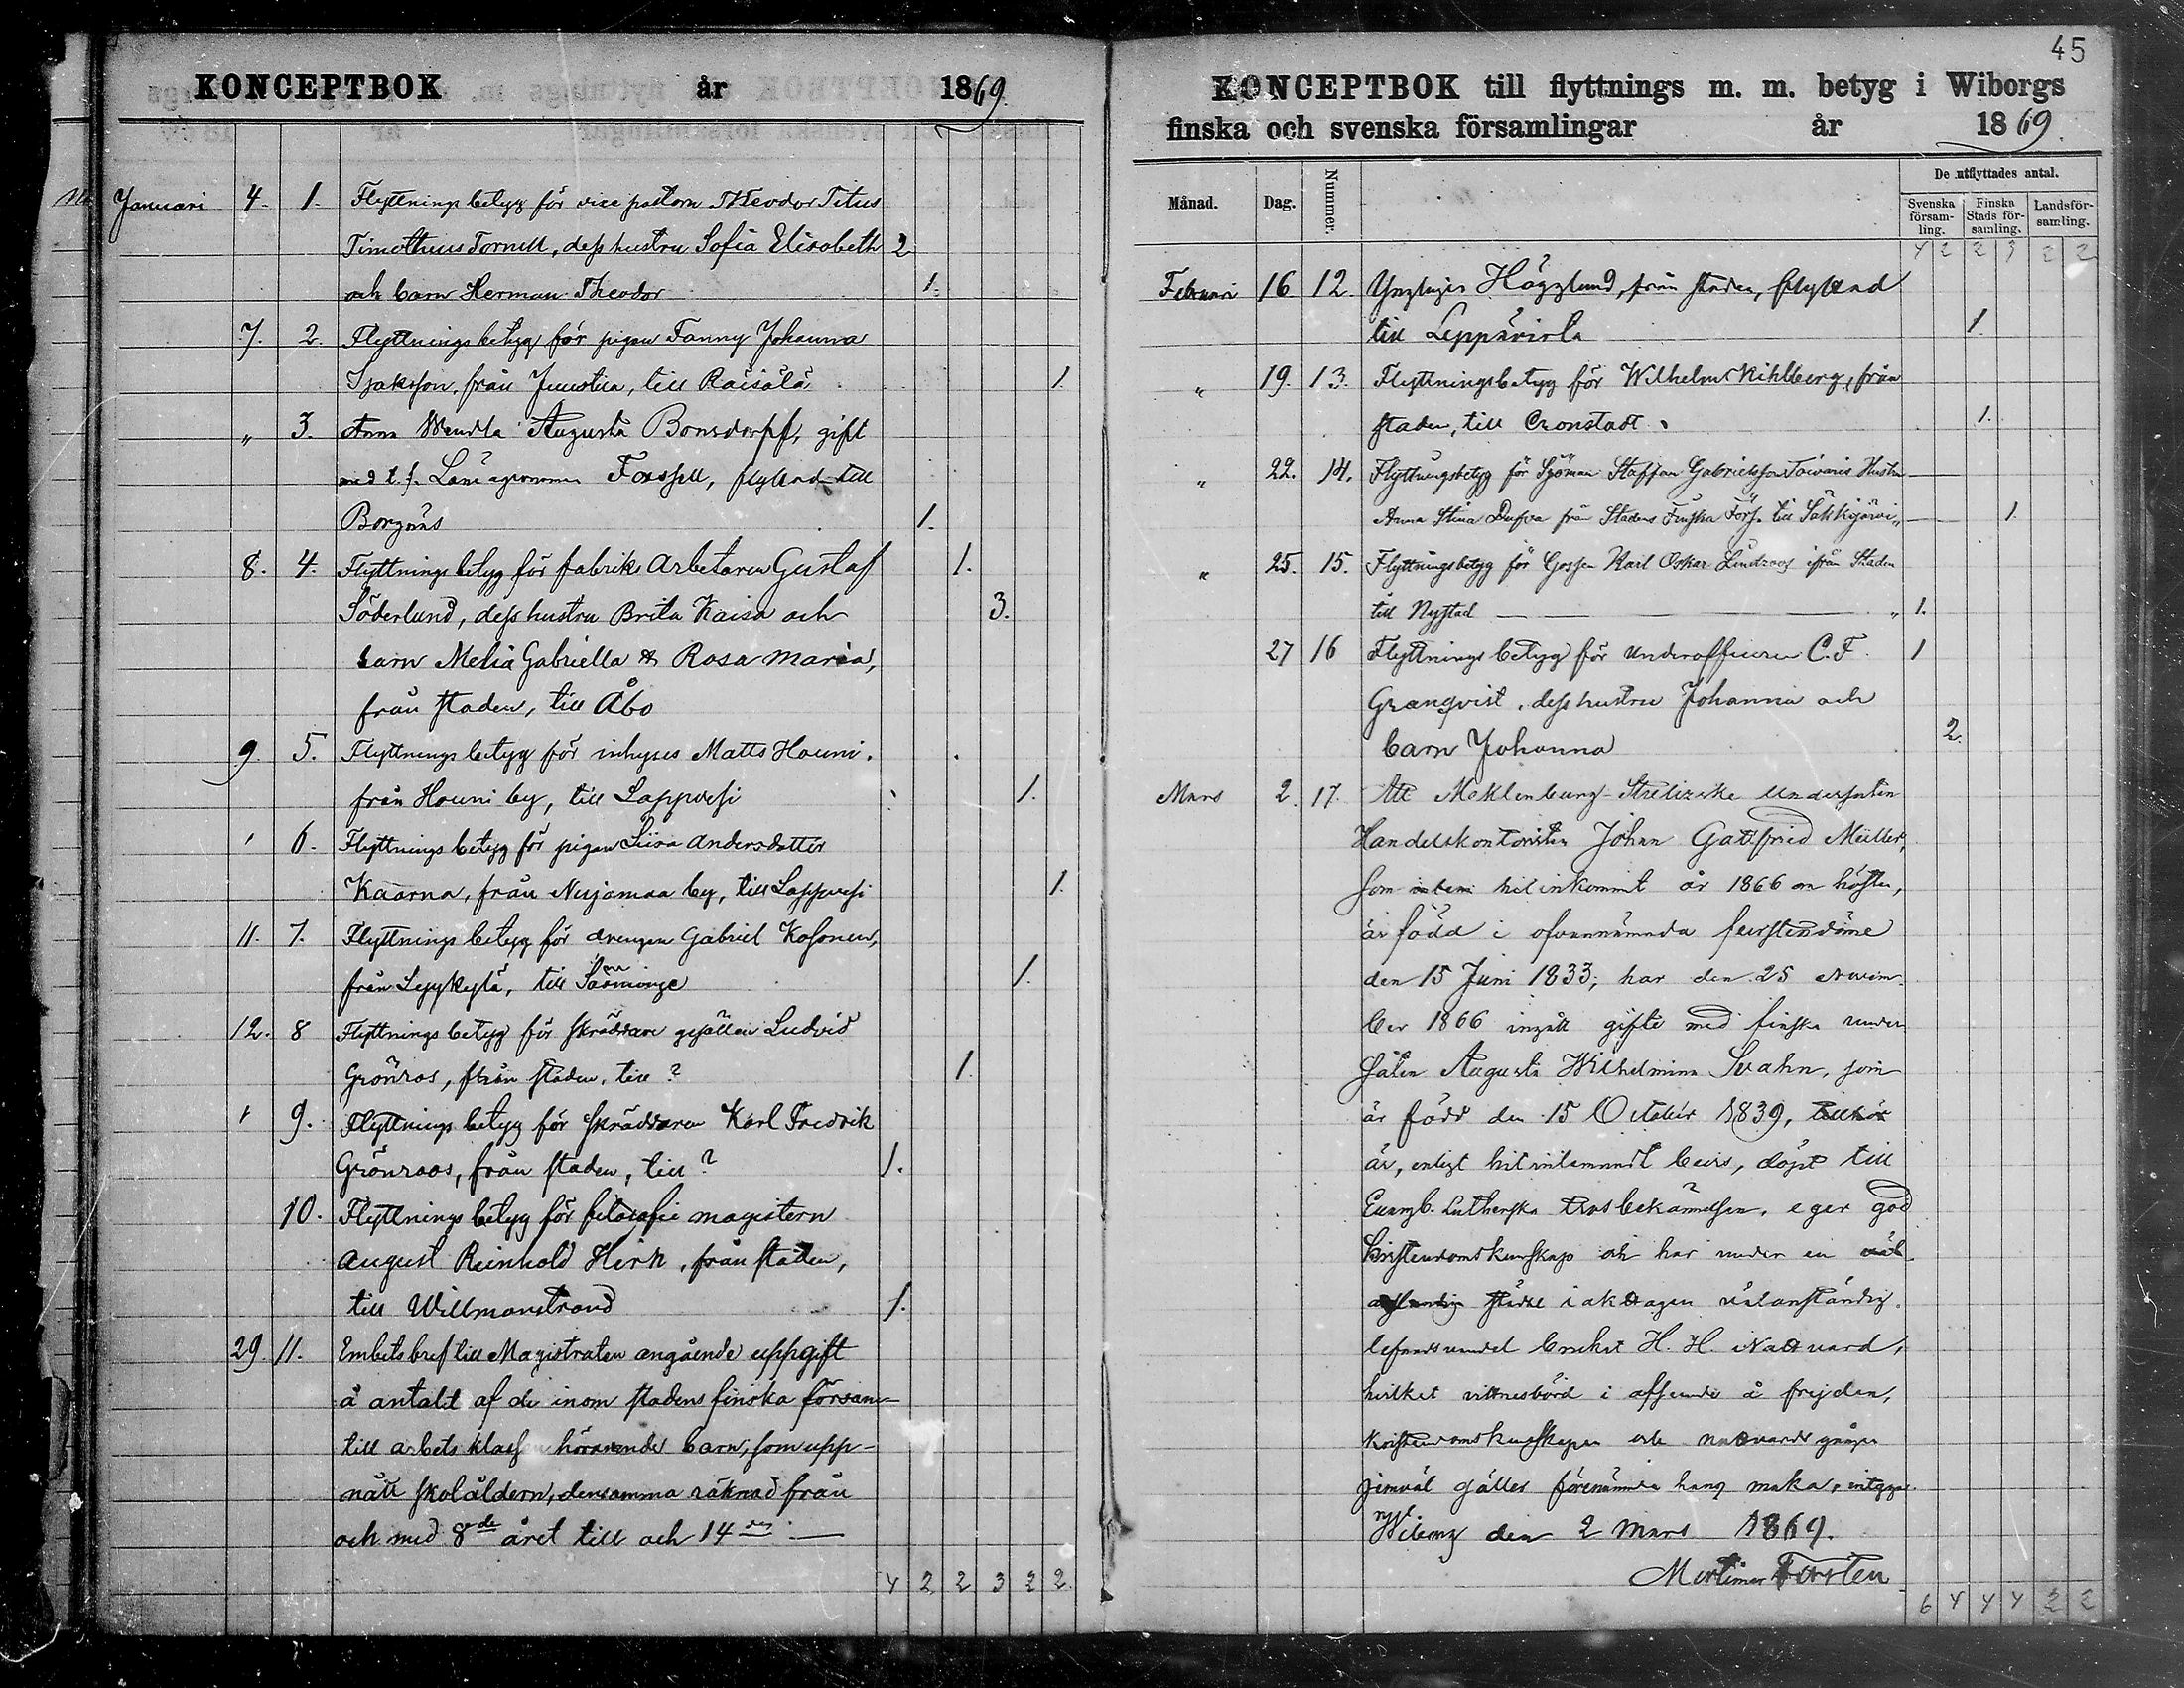 KONCEPTBOK år 1869.
Januari 4. 1. Flyttnings betyg för vice pastorn Theodor Titus
Timotheus Tornell, dess hustru Sofia Elisabeth 2
och barn Herman Theodor 1.
7. 2. Flyttnings betyg för pigan Fanny Johanna
Isaksson, från Juustila, till Räisälä 1.
„ 3. Anna Wendla Augusta Bonsdorff, gift
med t. f. Läns agronomen Forssell, flyttad till
Borgnäs 1.
8. 4. Flyttnings betyg för fabriks Arbetaren Gustaf 1.
Söderlund, dess hustru Brita Kaisa och 3.
barn Melia Gabriella & Rosa Maria,
från staden, till Åbo
9. 5. Flyttnings betyg för inhyses Matts Houni.
från Houni by, till Lappvesi 1.
6. Flyttnings betyg för pigan Liisa Andersdotter
Kaarna, från Nujamaa by, till Lappvesi 1.
11. 7. Flyttnings betyg för drengen Gabriel Kosonen,
från Lepykylä, till Säminge 1.
12. 8 Flyttnings betyg för skräddare gesällen Ludvid
Grönros, från staden, till? 1.
9. Flyttnings betyg för skräddaren Karl Fredrik
Grönroos, från staden, till? 1.
10. Flyttnings betyg för filosofie magistern
August Reinhold Hirn, från staden,
till Willmanstrand 1.
29. 11. Embetsbref till Magistraten angående uppgift
å antalet af de inom stadens finska försam-
till arbets klassen hörande barn, som upp-
nått skolåldern, densamma räknad från
och med 8de året till och 14de
4 2 2 3 2 2
45
KONCEPTBOK till flyttnings m. m. betyg i Wiborgs
finska och svenska församlingar år 1869.
Månad. Dag. Nummer. De utflyttades antal.
Svenska försam-ling. Finska Stads för-samling. Landsför-samling.
4 2 2 3 2 2
Februari 16 12. Ynglingen Högglund, från staden, flyttad
till Leppävirta 1.
„ 19. 13. Flyttningsbetyg för Wilhelm Kihlberg, från
staden, till Cronstadt. 1.
„ 22. 14. Flyttningsbetyg för Sjöman Staffan Gabrielsson Toivaris Hustru
Anna Stina Dufva från Stadens Finska Förs. till Säkkijärvi „ 1.
„ 25. 15. Flyttningsbetyg för Gossen Karl Oskar Lindroos ifrån Staden
till Nystad „ 1.
27 16 Flyttnings betyg för Underofficeren C. F. 1
Granqvist, dess hustru Johanna och
barn Johanna 2.
Mars 2. 17. Att Meklenburg-Strelizske undersåten
Handelskontoristen Johan Gottfried Müller,
som hit inkommit år 1866 om hösten,
är född i ofvannämnda furstendöme
den 15 Juni 1833; har den 25 Novem-
ber 1866 ingått gifte med finska under-
såten Augusta Wilhelmina Svahn, som
är född den 15 October 1839, tillhör
är, enligt hit inlemnadt bevis, döpt till
Evangb. Lutherska trosbekännelsen, eger god
kristendomskunskap och har under en
städse iakttagen välanständig
lefnadsvandel besökt H. H. Nattvard,
hvilket vittnesbörd i afseende å frejden,
kristendomskunskapen och nattvards gången
jemväl gäller förenämnda hans maka, intygar
Wiborg den 2 Mars 1869.
Mortimer Forstén
6 4 4 4 2 2